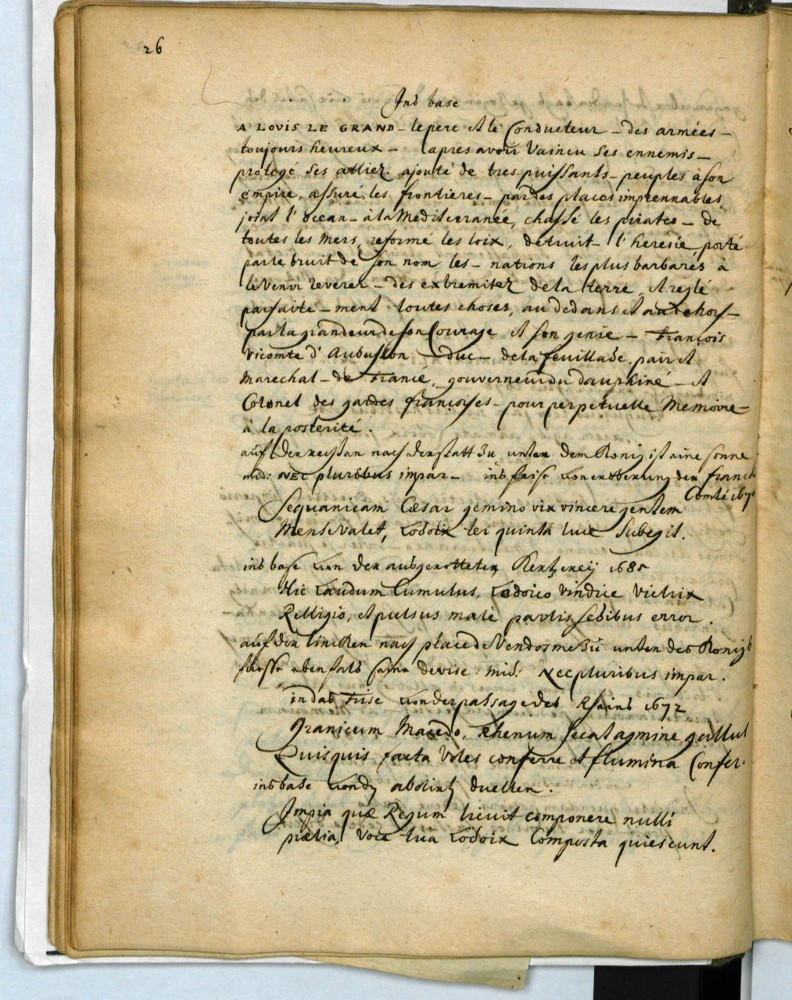 26
Ins base
A LOVIS LE GRAND – le pere & le Conducteur – des armées –
toujours heureux – apres avoir Vaincu ses ennemis –
protegé ses alliez. ajouté de tres puissants – peuples à son
empire, assuré les frontieres – par des places imprennables
joint l'ocean – à la Mediterranée, chassé les pirates – de
toutes les Mers, reformé les loix, detruit – l'heresie, porté
par le bruit de son nom les – nations les plus barbares à
le venir reverer – des extremitez de la terre, & reglé
parfaite – ment toutes choses, au dedans & au dehors –
par la grandeur de son Courage & son genie – François
Vicomte d'Aubusson – duc – de la feuillade pair &
Marechal – de France, gouverneur du dauphiné – &
Colonel des gardes françoises – pour perpetuelle Memoire
à la posterité.
auf der rechten nach der statt zu unter dem König ist eine sonne
mit: NEC pluribus impar – ins frise von eroberung der Franche
Comté 167
Sequanicam Cæsar gemino vix vincere gentem
Mense valet, Lodoix ter quinta luce subegit.
ins base von der ausgerotteten Ketzerey 1685
Hic laudum Cumulus, Lodoico vindice victrix
Relligio, & pulsus male partis sedibus error.
auf der lincken nach place de Vendosme zu unter des Königs
füsse ebenfals seine devise mit: Nec pluribus impar.
in das Frise von der passage des Rheins 1672
Granicum Macedo, Rhenum secat agmine gallus
Quisquis facta voles conferre & flumina Confer.
ins base von den abolirten duellen.
Impia quæ Regum licuit componere nulli
prælia, voce tua Lodoix Composta quiescunt.